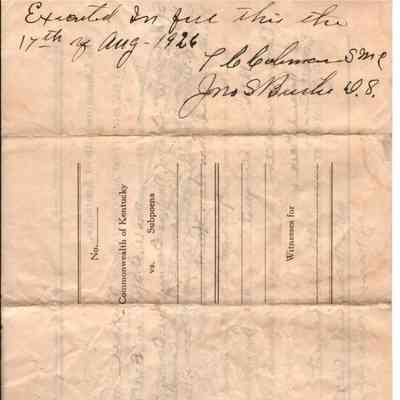 Executed in full this the
17th of Aug - 1926
T C Colman S M C
Jno S Burks D.S.
No.
Commonwealth of Kentucky
vs. Subpoena
Witnesses for